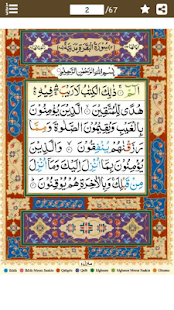 2 /67
سُوْرَةُ الْبَقَرَةِ مَدَنِيَّةٌ
بِسْمِ اللّٰهِ الرَّحْمٰنِ الرَّحِيْمِ
الٓمّٓ ۚ ذٰلِكَ الْكِتٰبُ لَا رَيْبَ ۛ فِيْهِ ۛ
هُدًى لِّلْمُتَّقِيْنَ ۙ الَّذِيْنَ يُؤْمِنُوْنَ
بِالْغَيْبِ وَيُقِيْمُوْنَ الصَّلٰوةَ وَمِمَّا
رَزَقْنٰهُمْ يُنْفِقُوْنَ ۙ وَالَّذِيْنَ
يُؤْمِنُوْنَ بِمَآ اُنْزِلَ اِلَيْكَ وَمَآ اُنْزِلَ
مِنْ قَبْلِكَ ۚ وَبِالْاٰخِرَةِ هُمْ يُوْقِنُوْنَ ؕ
منزل ١
Ikhfa Ikhfa Meem Saakin Qalqala Qalb Idghaam Idghaam Meem Saakin Ghunna